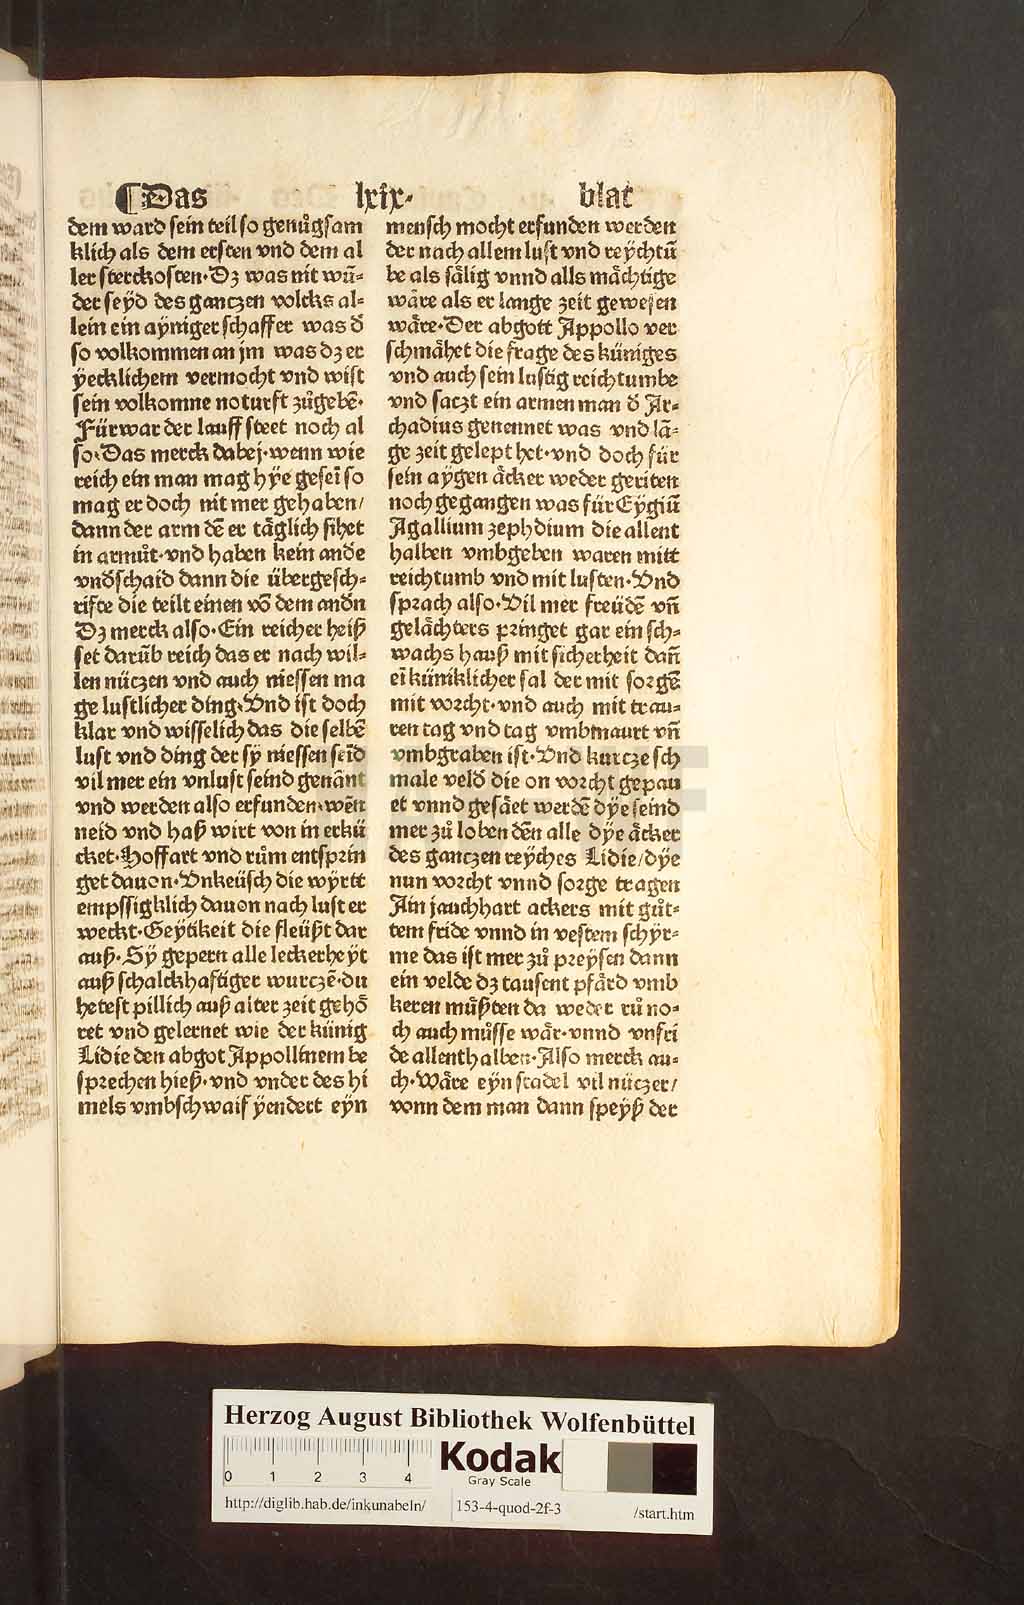 ¶Das lxix· blat
dem ward sein teil so genůgsam
klich als dem ersten vnd dem al
ler sterckosten·Dz was nit wū-
der seyd des ganczen volcks al-
lein ein aÿniger schaffer was d̄
so volkommen an jm was dz er
ÿecklichem vermocht vnd wist
sein volkomne noturft zůgebē·
Fürwar der lauff steet noch al
so·Das merck dabej·wenn wie
reich ein man mag hÿe geseī so
mag er doch nit mer gehaben/
dann der arm dē er täglich sihet
in armůt·vnd haben kein ande
vnd̄schaid dann die übergesch-
rifte die teilt einen vō dem and̄n
Dz merck also·Ein reicher heiß
set darūb reich das er nach wil-
len nüczen vnd auch niessen ma
ge lustlicher ding·Vnd ist doch
klar vnd wisselich das die selbē
lust vnd ding der sÿ niessen seīd
vil mer ein vnlust seind genānt
vnd werden also erfunden·wēn
neid vnd haß wirt von in erkü
cket·Hoffart vnd rům entsprin
get dauon·Vnkeüsch die wÿrtt
empssigklich dauon nach lust er
weckt·Geÿtikeit die fleüßt dar
auß·Sÿ gepern alle leckerheÿt
auß schalckhaftiger wurczē·du
hetest pillich auß alter zeit gehō
ret vnd gelernet wie der künig
Lidie den abgot Appollinem be
sprechen hieß·vnd vnder des hi
mels vmbschwaif ÿendert eÿn
mensch mocht erfunden werden
der nach allem lust vnd reÿchtū
be als sälig vnnd alls mächtige
wäre als er lange zeit gewesen
wäre·Der abgott Appollo ver
schmähet die frage des küniges
vnd auch sein lustig reichtumbe
vnd saczt ein armen man d̄ Ar-
chadius genennet was vnd lā-
ge zeit gelept het·vnd doch für
sein aÿgen äcker weder geriten
noch gegangen was für Eÿgiū
Agallium zephdium die allent
halben vmbgeben waren mitt
reichtumb vnd mit lusten·Vnd
sprach also·Vil mer freüdē vn̄
gelächters pringet gar ein sch-
wachs hauß mit sicherheit dan̄
eī küniklicher sal der mit sorgē
mit vorcht·vnd auch mit trau-
ren tag vnd tag vmbmaurt vn̄
vmbgraben ist·Vnd kurcze sch
male veld die on vorcht gepau
et vnnd gesäet werdē dÿe seind
mer zů loben dēn alle dÿe äcker
des ganczen reÿches Lidie/dÿe
nun vorcht vnnd sorge tragen
Ain jauchhart ackers mit gůt-
tem fride vnnd in vestem schÿr-
me das ist mer zů preÿsen dann
ein velde dz tausent pfärd vmb
keren můßten da weder rů no-
ch auch můsse wär·vnnd vnfri
de allenthalben·Also merck au-
ch·Wäre eÿn stadel vil nüczer/
vonn dem man dann speÿß der
Herzog August Bibliothek Wolfenbüttel
0 1 2 3 4
Kodak
Gray Scale
http://diglib.hab.de/inkunabeln/ 153-4-quod-2f-3 /start.htm